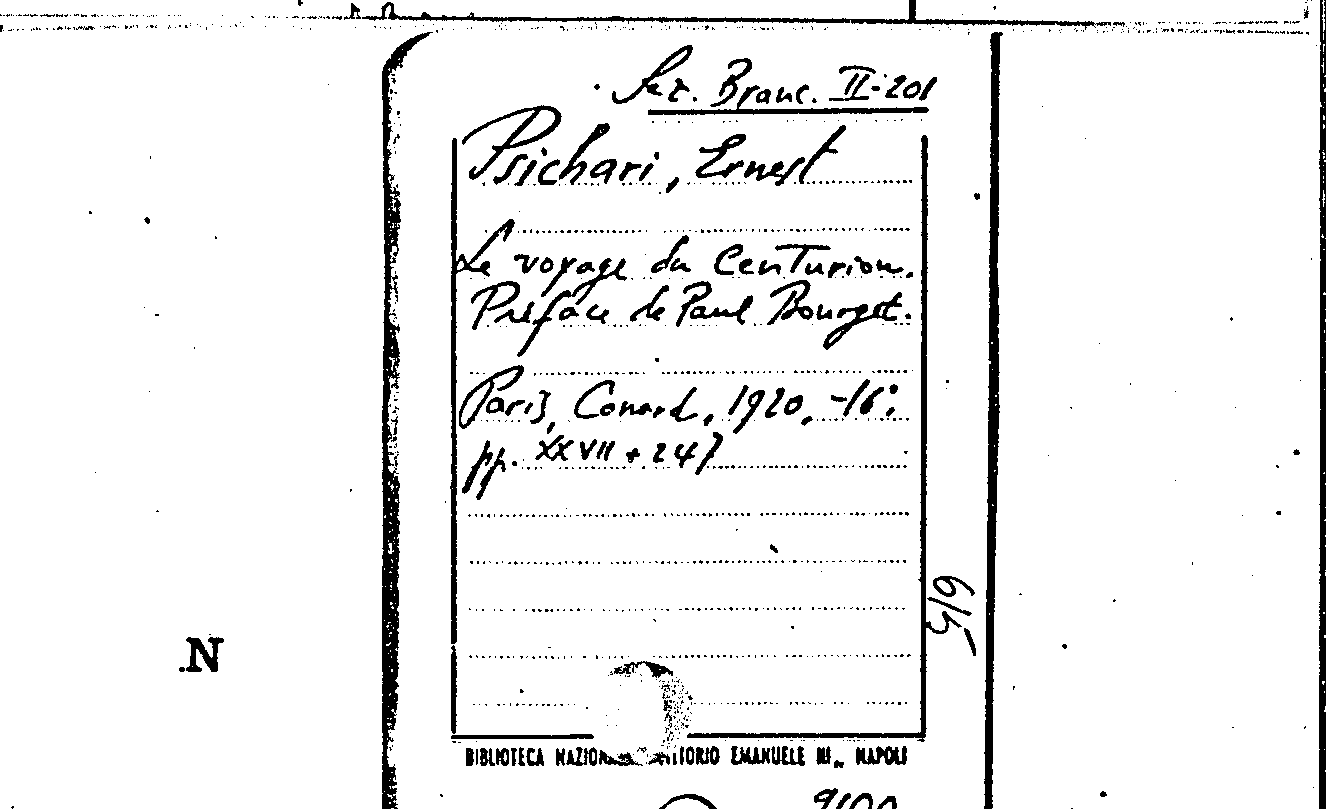 Sez. Branc. II-201
Psichari, Ernest
Le voyage du Centurion.
Préface de Paul Bourget.
Paris, Conard, 1920, -16°.
pp. XXVII + 247
619
.N
BIBLIOTECA NAZIONALE VITTORIO EMANUELE III„ NAPOLI